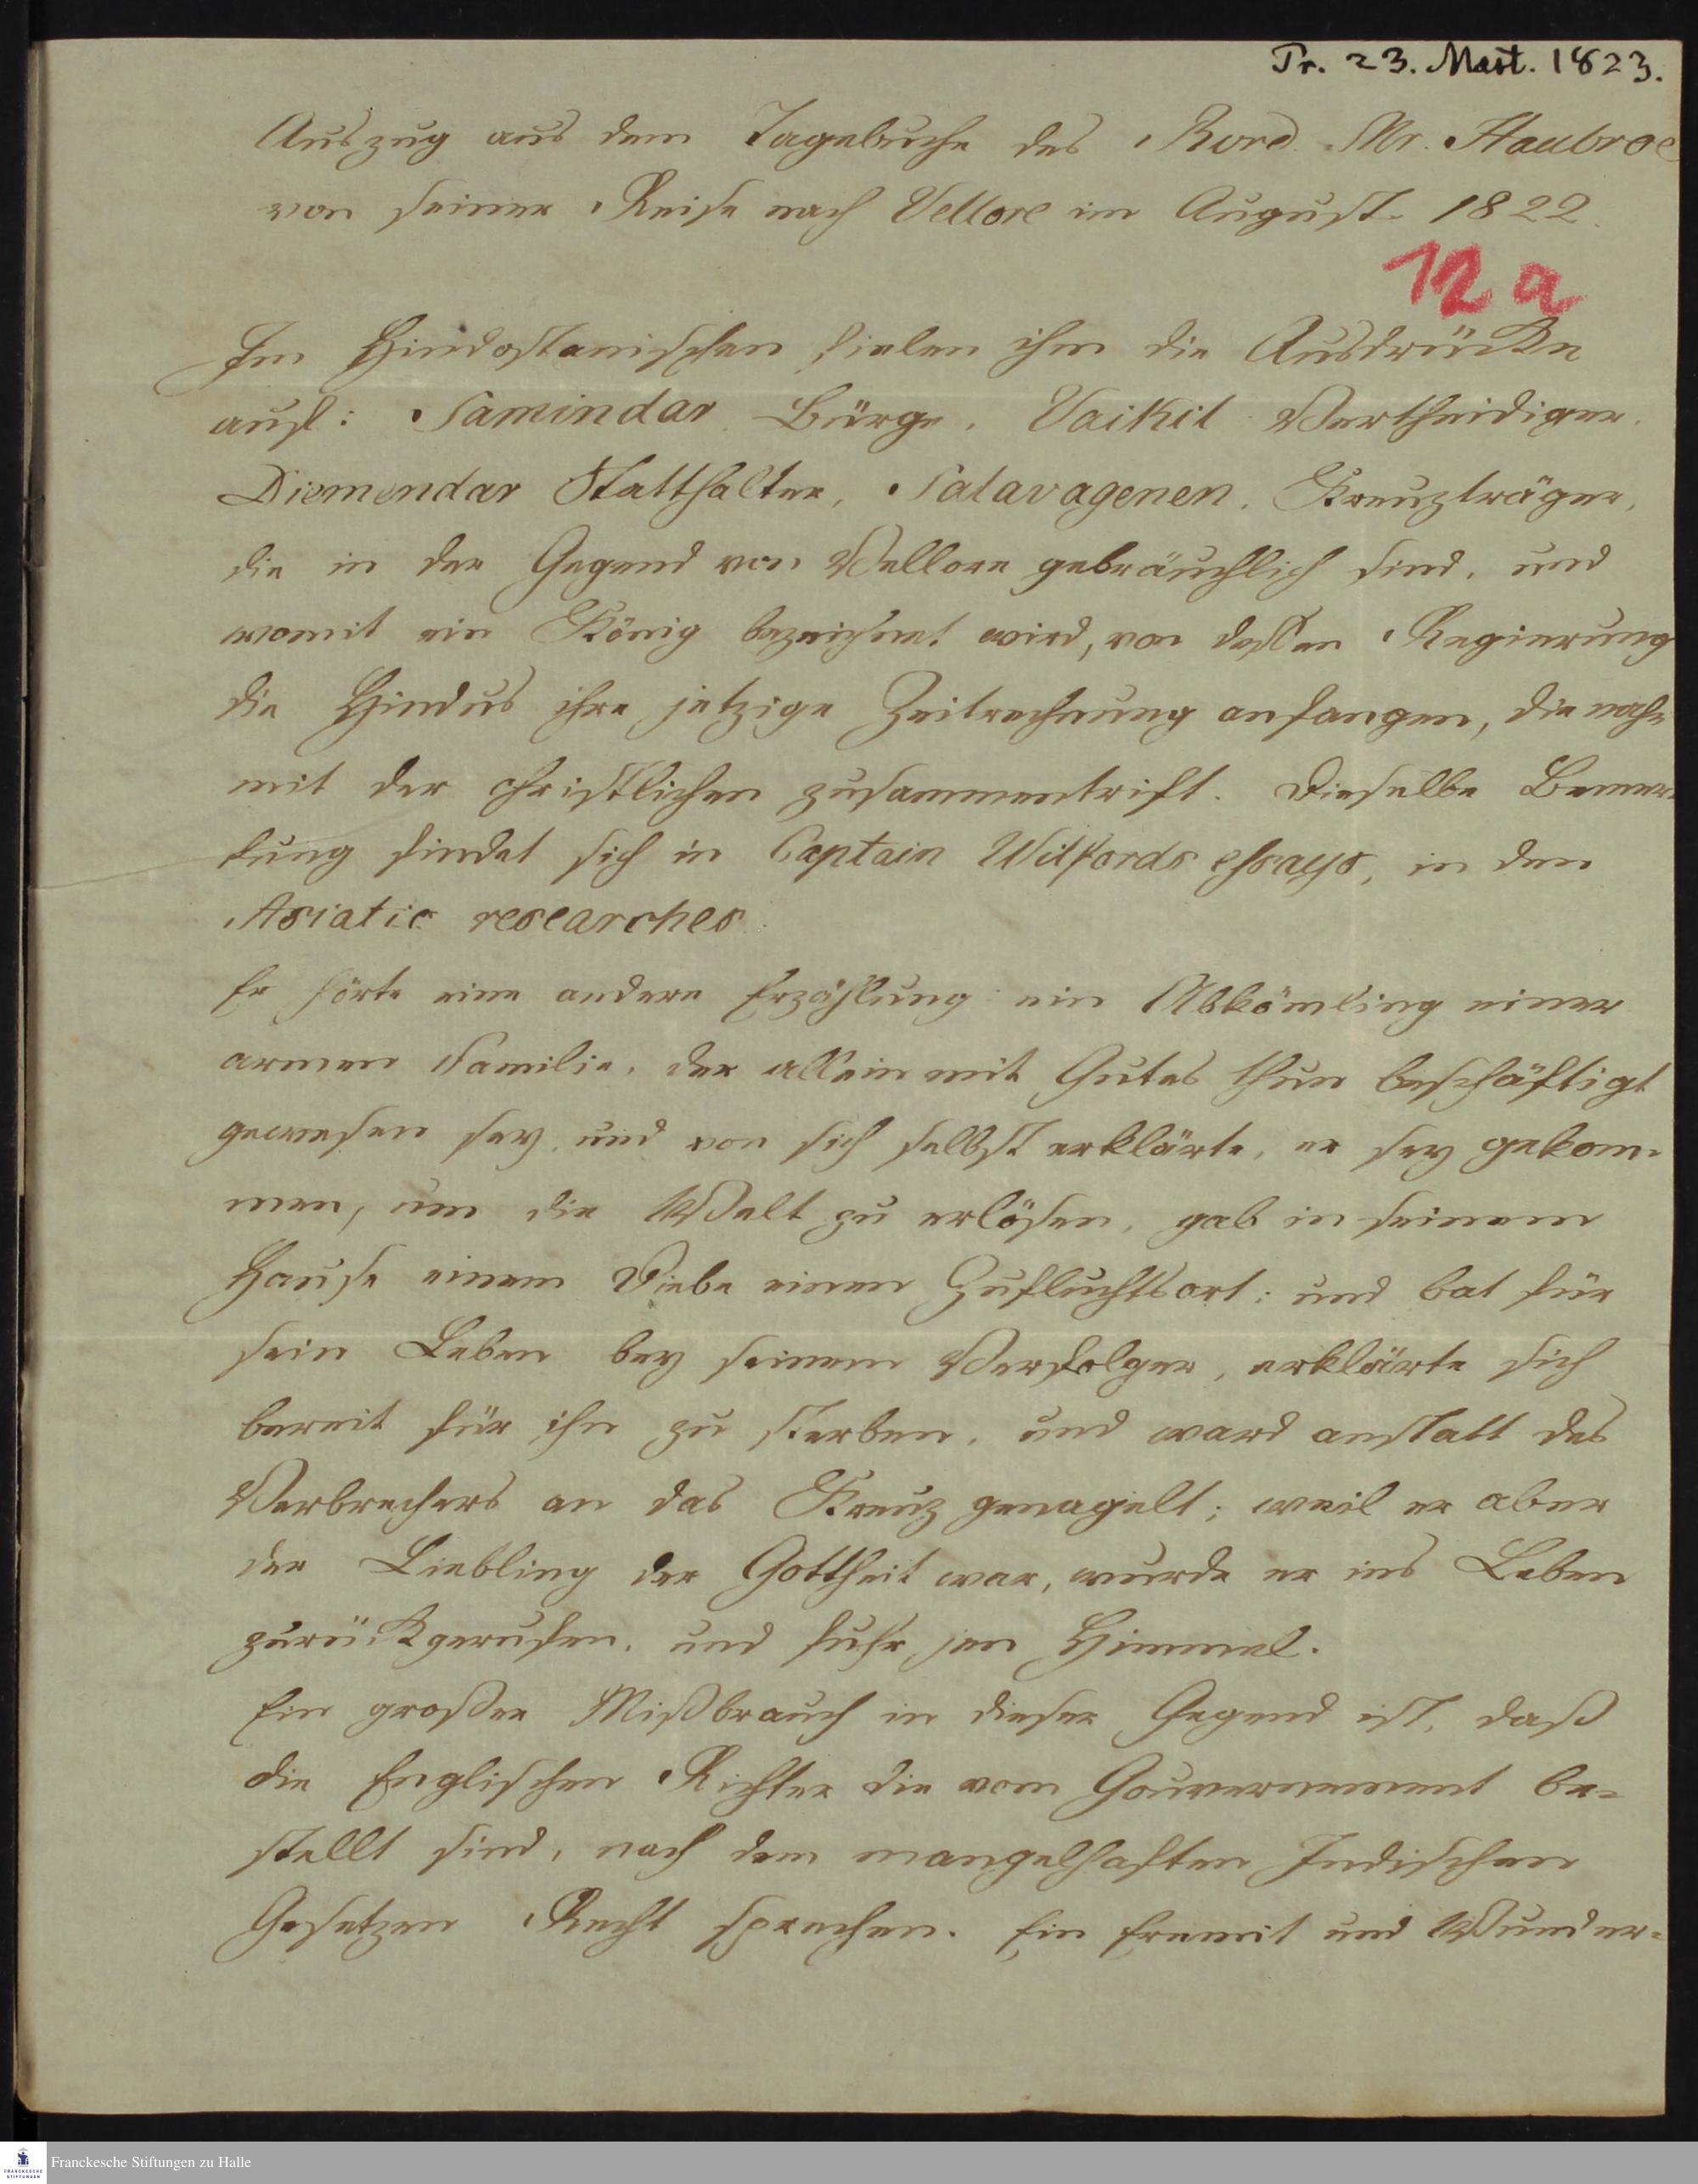 Pr. 23. Mart. 1823.
Auszug aus dem Tagebuche des Revd. Mr. Haubroe
von seiner Reise nach Vellore im August 1822.
12 a
Im Hindostanischen fielen ihm die Ausdrücke
auf: Samindar Bürge, Vaikil Vertheidiger
Diemendar Statthalter, Salavagenen, Kreuzträger,
die in der Gegend von Vellore gebräuchlich sind, und
womit ein König bezeichnet wird, von dessen Regierung
die Hindus ihre jetzige Zeitrechnung anfangen, die nahe
mit der christlichen zusammentrift. Dieselbe Bemer-
kung findet sich in Captain Wilfords essays, in den
Asiatic researches.
Er hörte eine andere Erzählung: ein Abkömling einer
armen Familie, der allein mit Gutes thun beschäftigt
gewesen sey, und von sich selbst erklärte, er sey gekom-
men, um die Welt zu erlösen, gab in seinem
Hause einem Diebe einen Zufluchtsort; und bat für
sein Leben bey seinem Verfolger, erklärte sich
bereit für ihn zu sterben, und ward anstatt des
Verbrechers an das Kreuz genagelt; weil er aber
der Liebling der Gottheit war, wurde er ins Leben
zurückgerufen, und fuhr gen Himmel.
Ein großer Mißbrauch in dieser Gegend ist, daß
die Englischen Richter die vom Gouvernement be-
stellt sind, nach dem mangelhaften Indischen
Gesetzen Recht sprechen. Ein Eremit und Wunder-
FRANCKESCHE STIFTUNGEN
Franckesche Stiftungen zu Halle